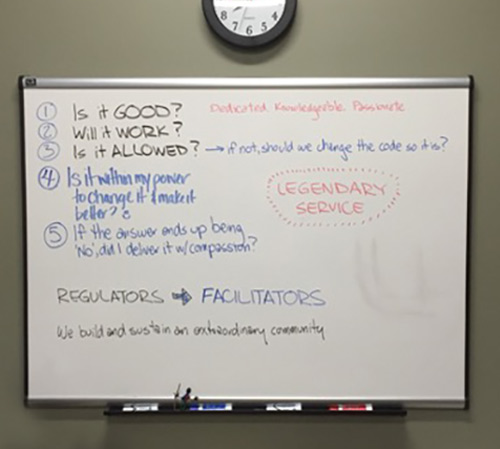 8 7 6 5 4
① Is it GOOD? Dedicated. Knowledgeable. Passionate
② Will it WORK?
③ Is it ALLOWED? → if not, should we change the code so it is?
④ Is it within my power
to change it & make it
better?
LEGENDARY
SERVICE
⑤ If the answer ends up being
'No', did I deliver it w/compassion?
REGULATORS ➡ FACILITATORS
We build and sustain an extraordinary community